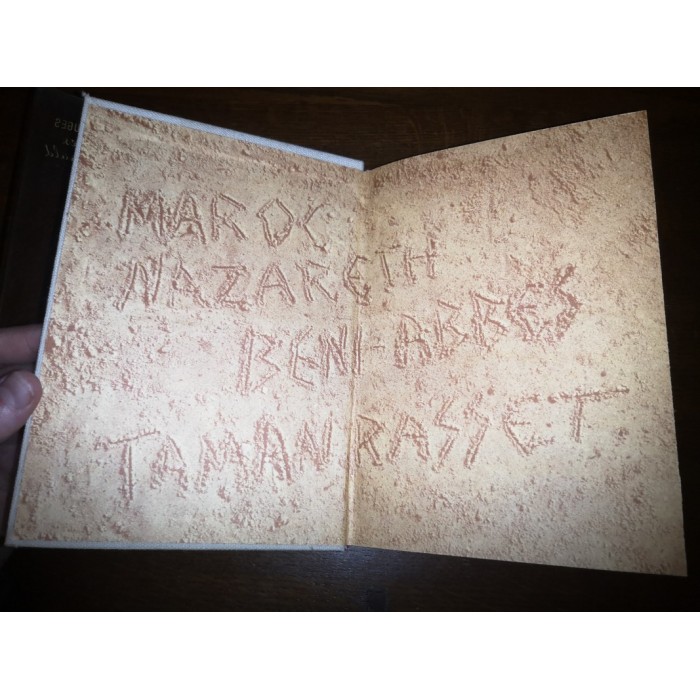 MAROC
NAZARETH
BENI-ABBES
TAMANRASSET